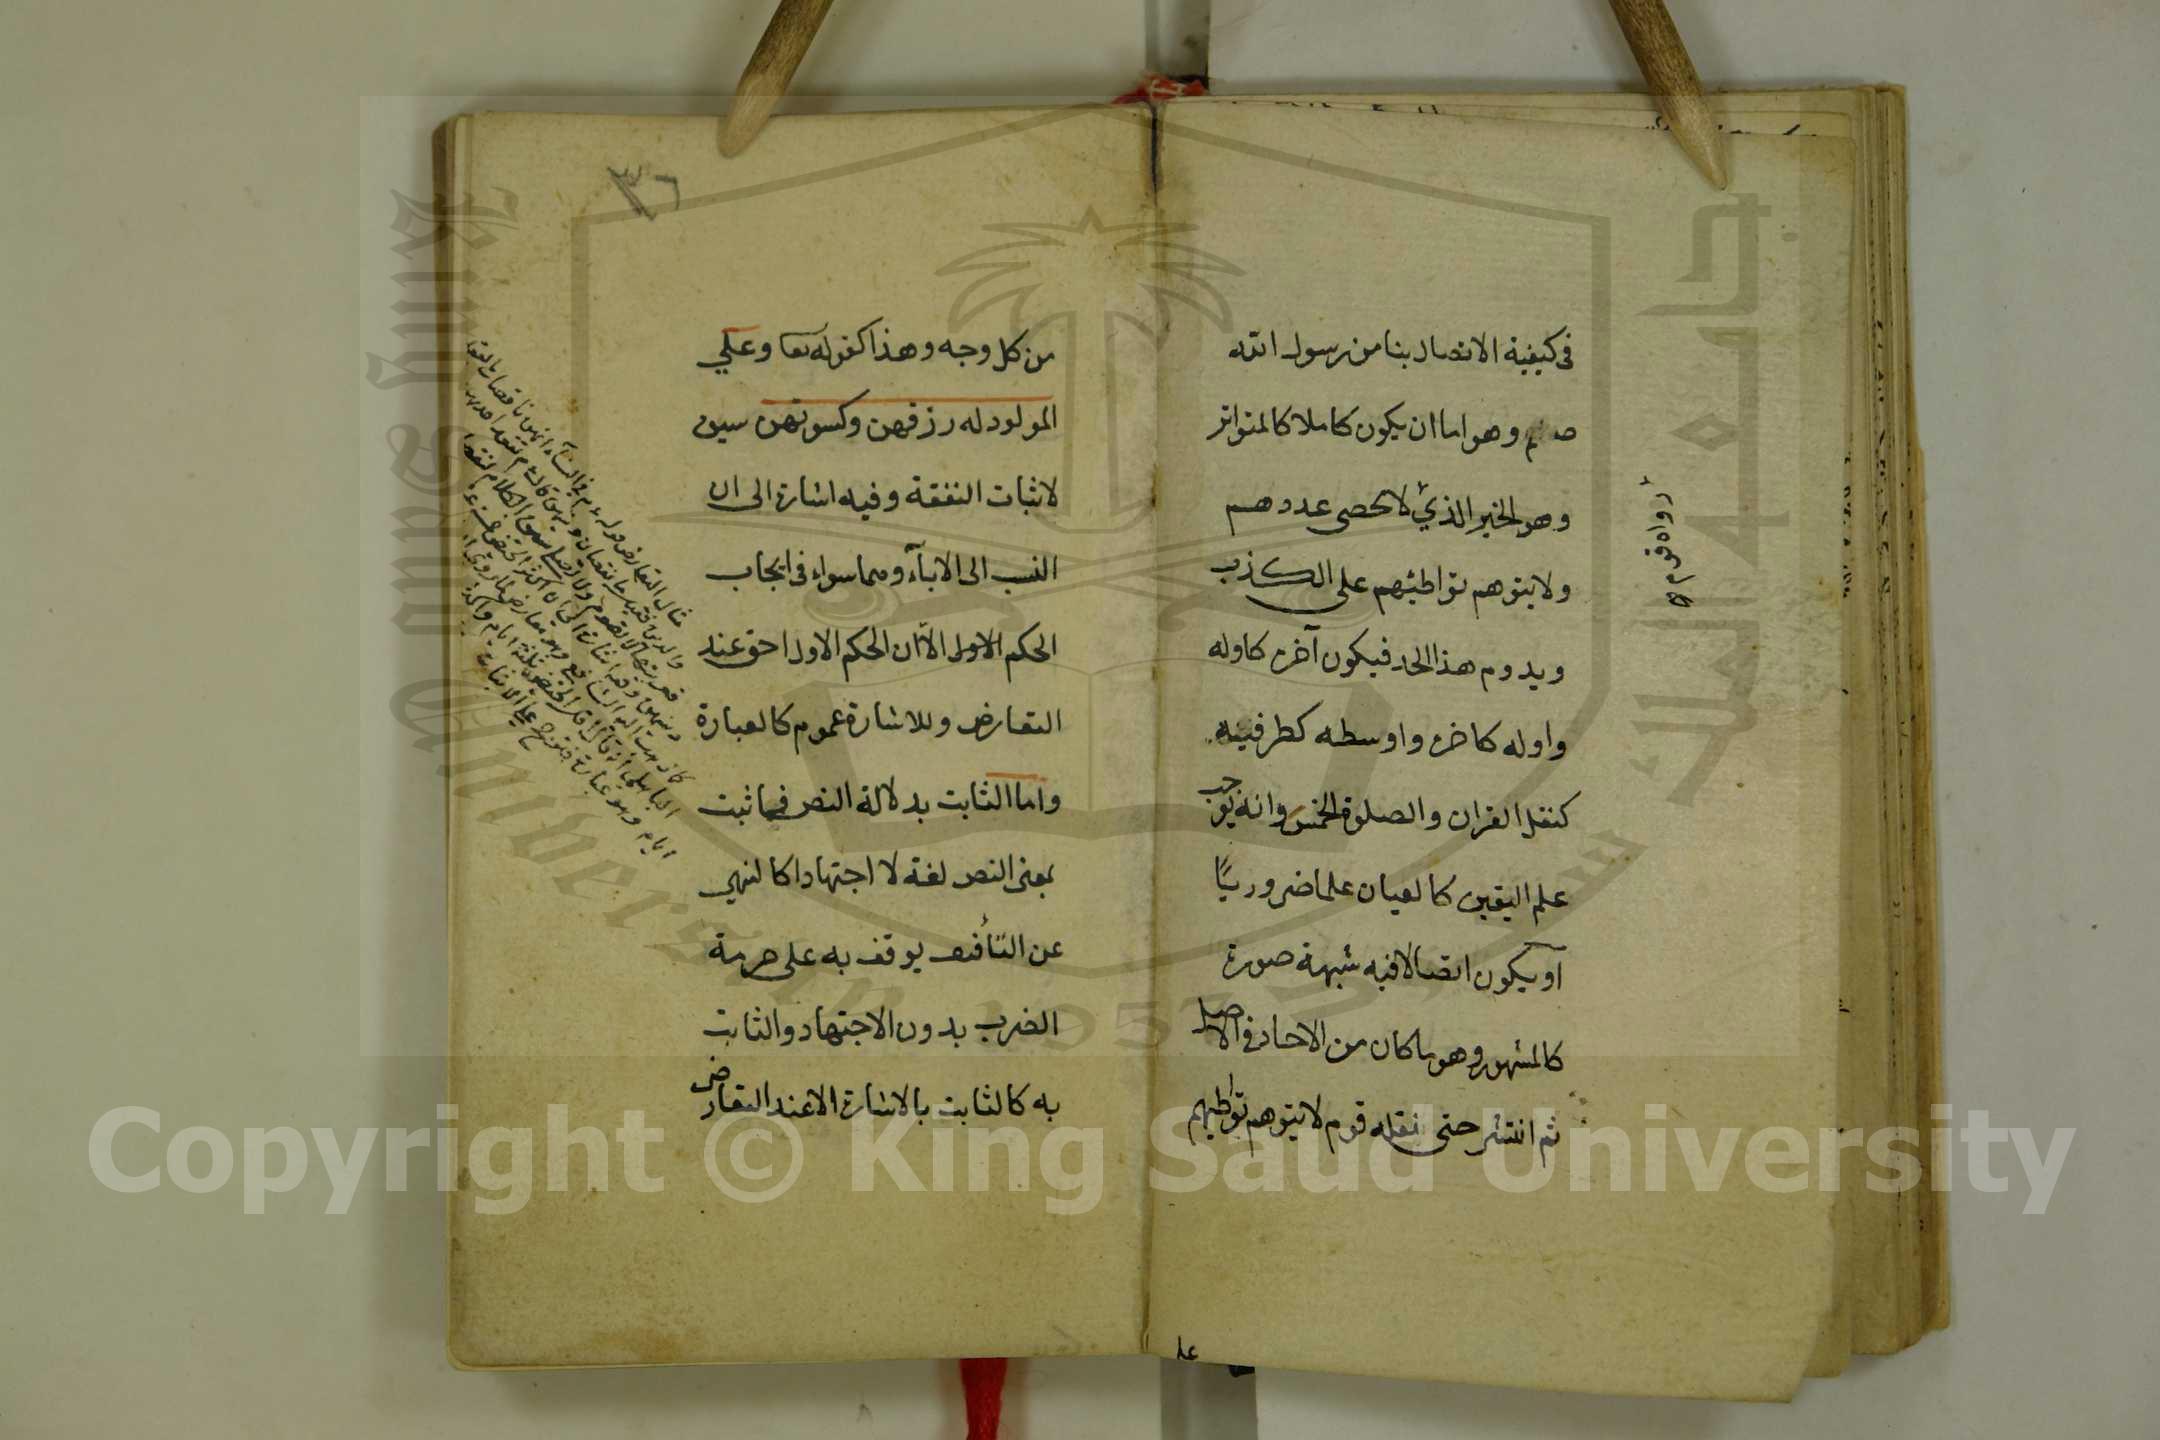 في كيفية الاتصال بنا من رسول الله
صلعم وهو اما ان يكون كاملا كالمتواتر
وهو الخبر الذي لا يحصى عددهم
ولا يتوهم تواطئهم على الكذب
ويدوم هذا الحد فيكون آخره كاوله
واوله كاخره واوسطه كطرفيه
كنقل القران والصلوة الخمس وانه يوجب
علم اليقين كالعيان علما ضروريًا
او يكون اتصالا فيه شبهة صورة
كالمشهور وهو ما كان من الاحاد في الاصل
ثم انتشر حتى نقله قوم لا يتوهم تواطيهم
رواه قوم
على
٣٦
من كل وجه وهذا كقوله تعا وعلي
المولود له رزقهن وكسوتهن سيق
لاثبات النفقة وفيه اشارة الى ان
النسب الى الاباء وهما سواء في ايجاب
الحكم الاول الاّ ان الحكم الاول احق عند
التعارض وللاشارة عموم كالعبارة
واما الثابت بدلالة النص فما ثبت
بمعنى النص لغة لا اجتهادا كالنهي
عن التأفيف يوقف به على حرمة
الضرب بدون الاجتهاد والثابت
به كالثابت بالاشارة الا عند التعارض
جامعة الملك سعود
King Saud University 1957
Copyright © King Saud University